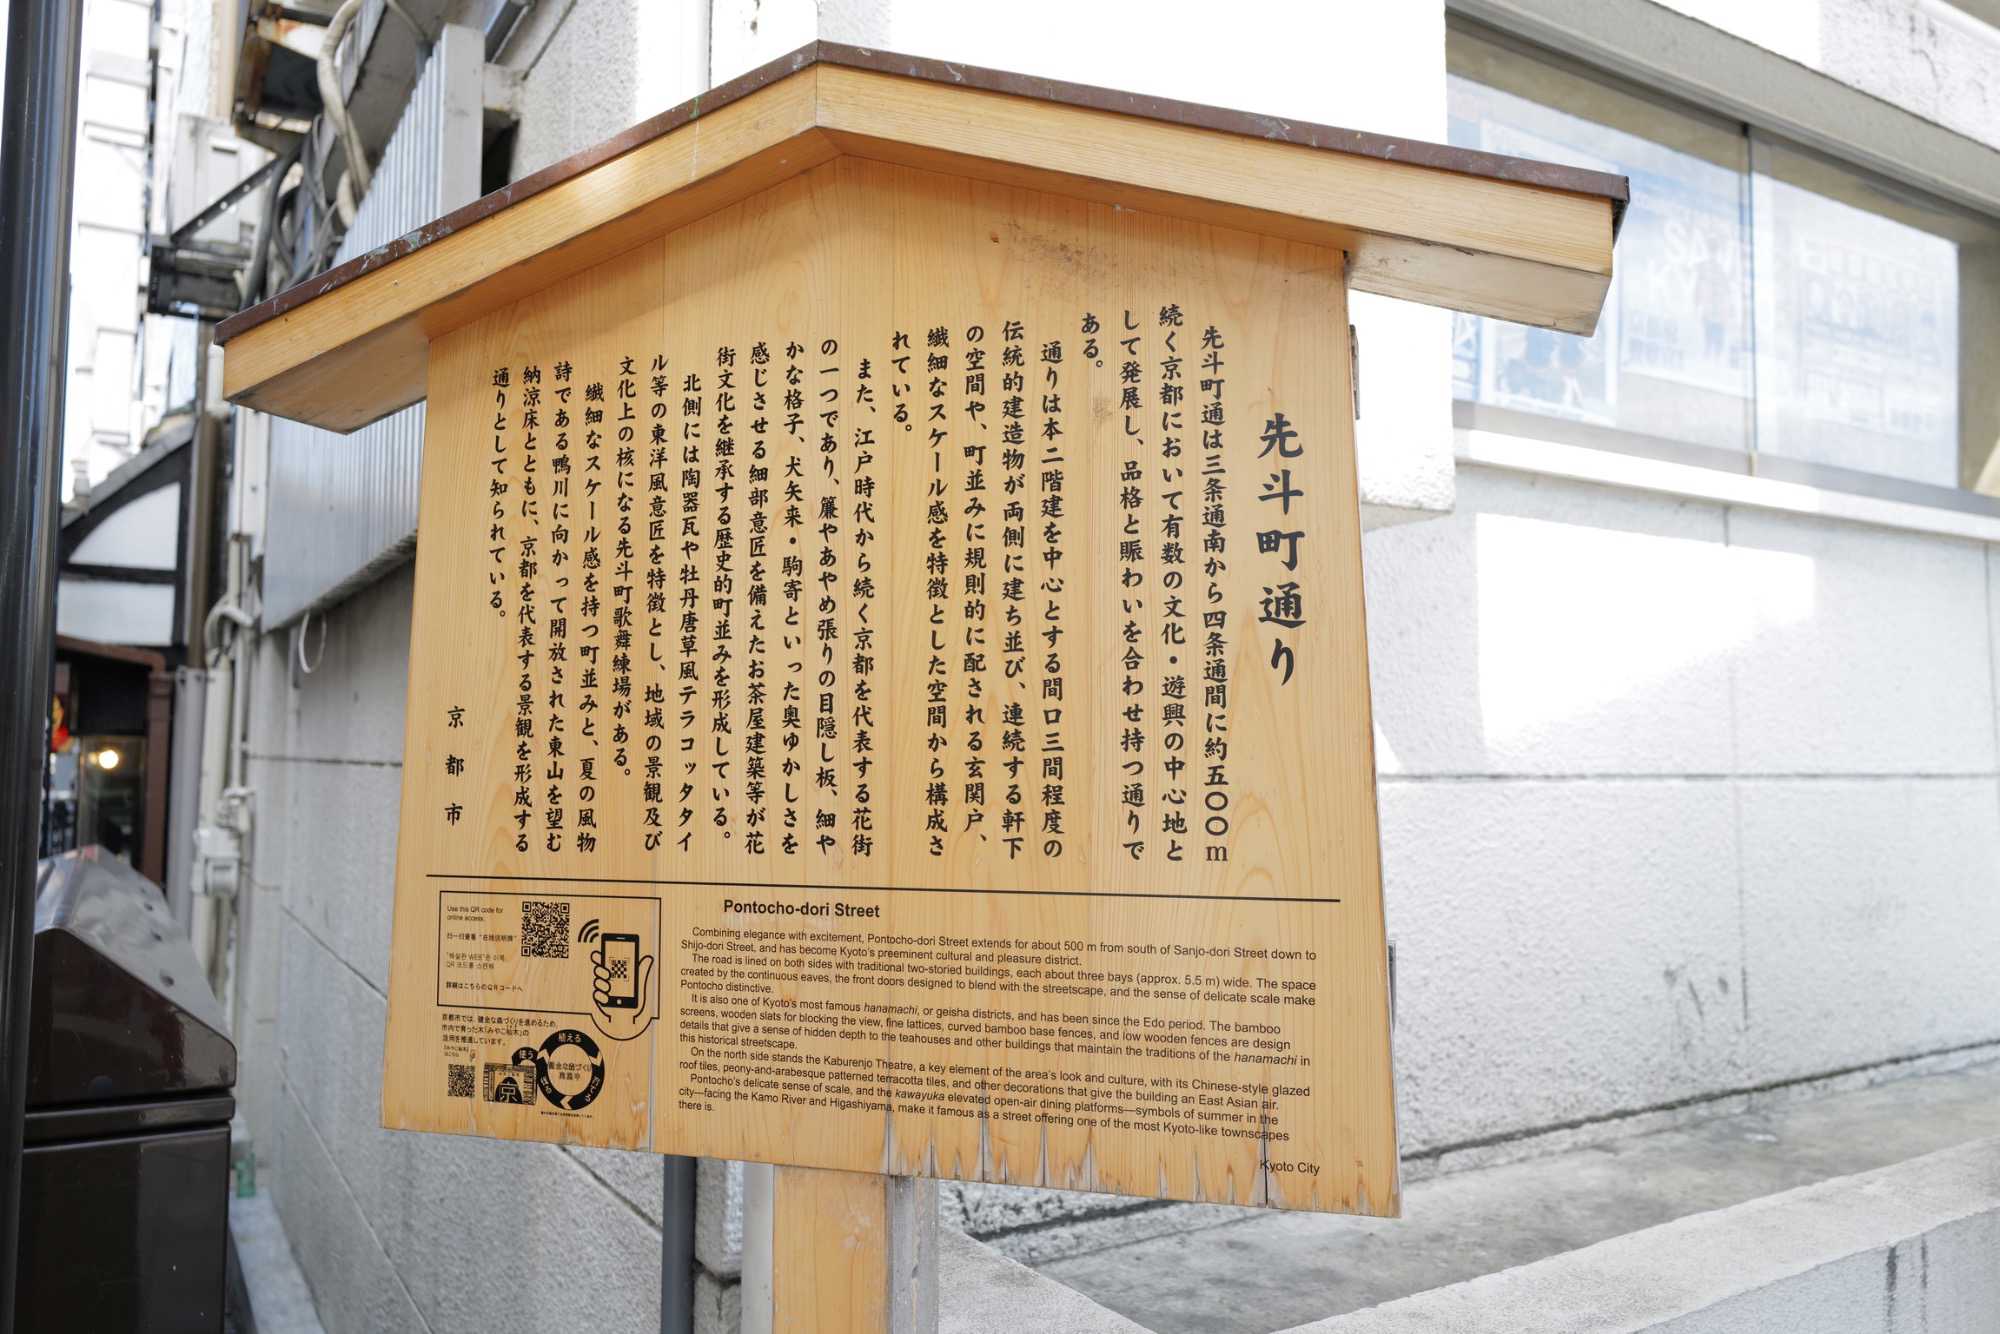 先斗町通り
先斗町通は三条通南から四条通間に約五〇〇m
続く京都において有数の文化・遊興の中心地と
して発展し、品格と賑わいを合わせ持つ通りで
ある。
通りは本二階建を中心とする間口三間程度の
伝統的建造物が両側に建ち並び、連続する軒下
の空間や、町並みに規則的に配される玄関戸、
繊細なスケール感を特徴とした空間から構成さ
れている。
また、江戸時代から続く京都を代表する花街
の一つであり、簾やあやめ張りの目隠し板、細や
かな格子、犬矢来・駒寄といった奥ゆかしさを
感じさせる細部意匠を備えたお茶屋建築等が花
街文化を継承する歴史的町並みを形成している。
北側には陶器瓦や牡丹唐草風テラコッタタイ
ル等の東洋風意匠を特徴とし、地域の景観及び
文化上の核になる先斗町歌舞練場がある。
繊細なスケール感を持つ町並みと、夏の風物
詩である鴨川に向かって開放された東山を望む
納涼床とともに、京都を代表する景観を形成する
通りとして知られている。
京都市
Use this QR code for
online access.
扫一扫查看“在线说明牌”
"해설판 WEB"은 이쪽
QR 코드를 스캔해
詳細はこちらのQRコードへ
京都市では、健全な森づくりを進めるため、
市内で育った木「みやこ杣木」の
活用を推進しています。
植える
使う
健全な森づくり
推進中
Pontocho-dori Street
Combining elegance with excitement, Pontocho-dori Street extends for about 500 m from south of Sanjo-dori Street down to
Shijo-dori Street, and has become Kyoto's preeminent cultural and pleasure district.
The road is lined on both sides with traditional two-storied buildings, each about three bays (approx. 5.5 m) wide. The space
created by the continuous eaves, the front doors designed to blend with the streetscape, and the sense of delicate scale make
Pontocho distinctive.
It is also one of Kyoto's most famous hanamachi, or geisha districts, and has been since the Edo period. The bamboo
screens, wooden slats for blocking the view, fine lattices, curved bamboo base fences, and low wooden fences are design
details that give a sense of hidden depth to the teahouses and other buildings that maintain the traditions of the hanamachi in
this historical streetscape.
On the north side stands the Kaburenjo Theatre, a key element of the area's look and culture, with its Chinese-style glazed
roof tiles, peony-and-arabesque patterned terracotta tiles, and other decorations that give the building an East Asian air.
Pontocho's delicate sense of scale, and the kawayuka elevated open-air dining platforms—symbols of summer in the
city—facing the Kamo River and Higashiyama, make it famous as a street offering one of the most Kyoto-like townscapes
there is.
Kyoto City